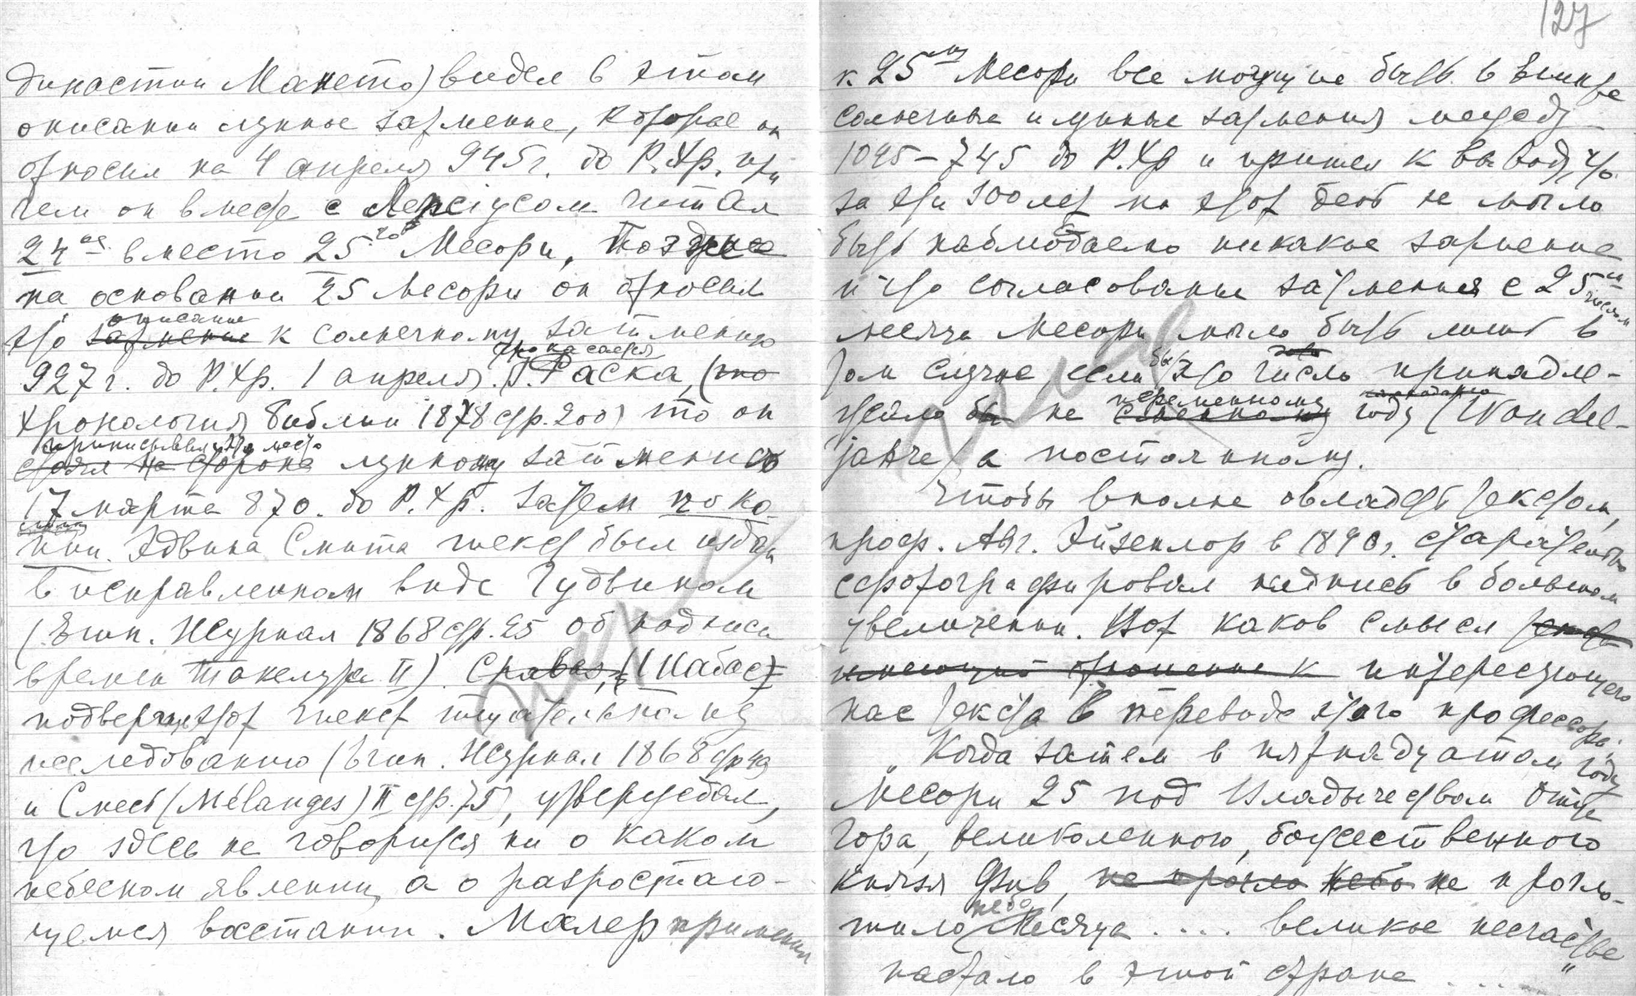 династии Мането) видел в этом
описании лунное затмение, которое он
относил на 4 апреля 945 г. до Р.Хр. при
чем он вместе с Лепсіусом читал
24ое вместо 25го Месори. Позднее
на основании 25 Месори он относил
это затмение описание к солнечному затмению
927 г. до Р.Хр. 1 апреля. Что касается Г. Раска, (это
хронология библии 1878 стр. 200) то он
приписывал это место лунному затмению
17 марта 870. до Р.Хр. Затем по ко
пии Эдвина Смита текст был издан
в исправленном виде Гудвином
(Егип. Журнал 1868 стр. 25 об надписи
времен Такелута II). Шабас
подвергнув этот текст тщательному
исследованию (Егип. Журнал 1868 стр. 49
и Смесь (Mélanges) II стр. 75), утверждал,
что здесь не говорится ни о каком
небесном явлении, а о разростаю-
щемся востании. Малер применил
127
к 25му Месори все могущие быть в Египте
солнечные и лунные затмения между
1095 – 745 до Р.Хр и пришел к выводу, что
за эти 300 лет на этот день не могло
быть наблюдаемо никакое затмение
и что согласование затмения с 25м числом
месяца Месори могло быть лишь в
том случае если бы это число принадле-
жало бы не переменному году (Wandel-
jahre) а постоянному.
Чтобы вполне овладеть текстом,
проф. Авг. Эйзенлор в 1890 г. старательно
сфотографировал надпись в большом
увеличении. Вот каков смысл текста
имеющий отношение к интересующего
нас текста в переводе этого профессора:
„Когда затем в пятнадцатом году
Месори 25 под владычеством отца
Гора, великолепного, божественного
князя Фив, не прогло небо не прогло-
тило небо Месяца .... великое несчастье
настало в этой стране ....“